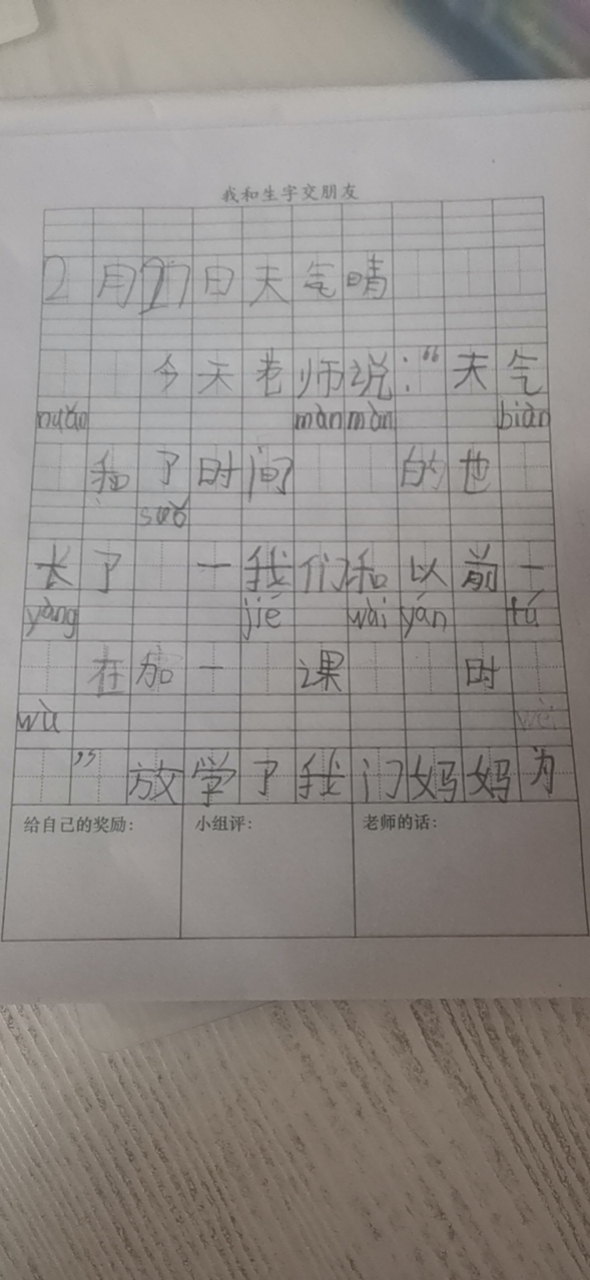 我和生字交朋友
2月27日天气晴
今天老师说：“天气
nuǎn màn màn biàn
和了时间 的也
suǒ
长了 一我们和以前一
yàng jié wài yán tú
在加一 课 时
wù
” 放学了我门妈妈为
给自己的奖励： 小组评： 老师的话：